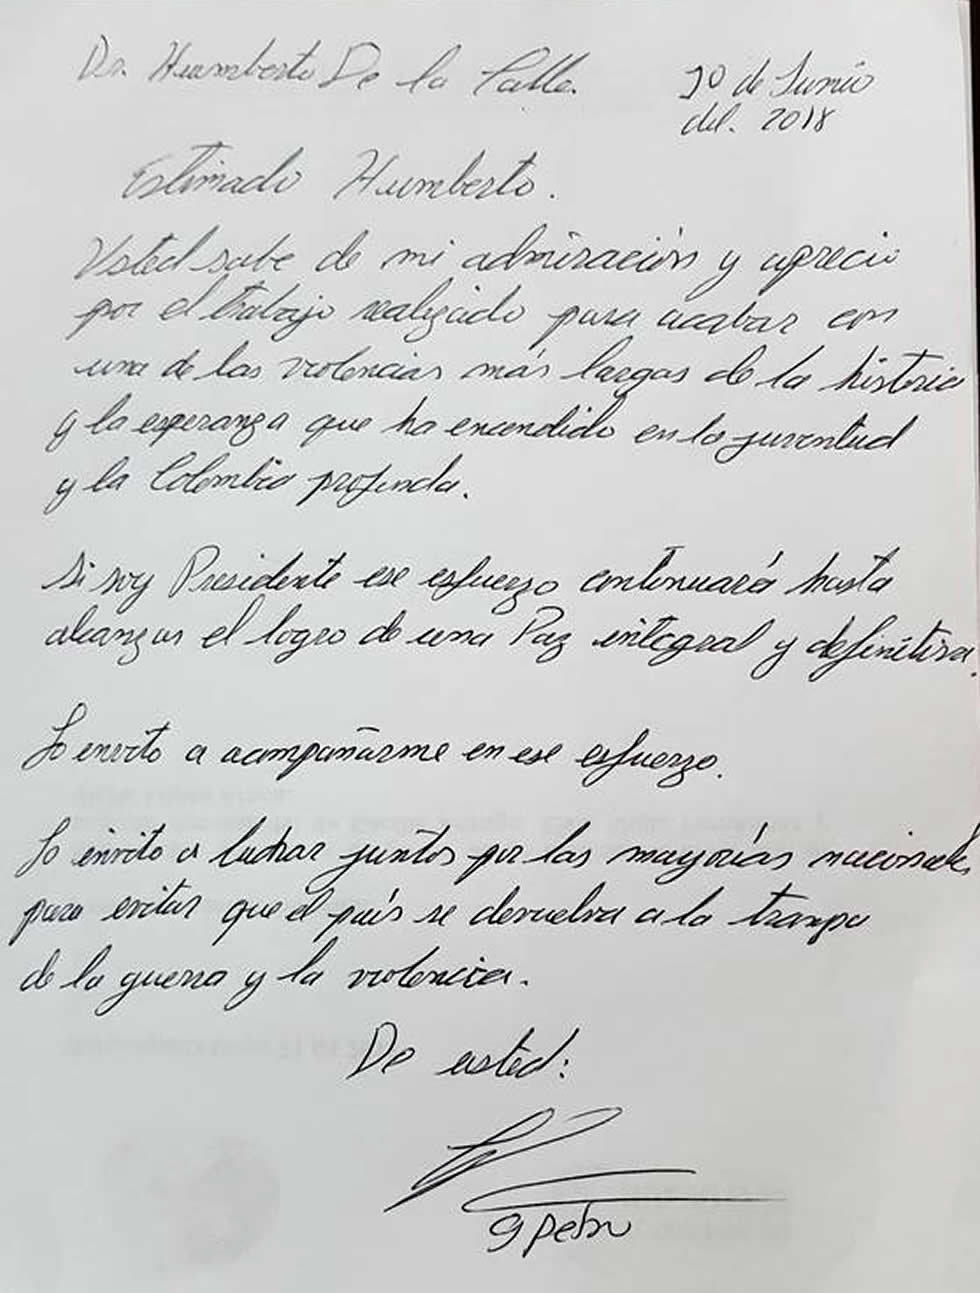 Dr. Humberto De la Calle.
10 de Junio
del. 2018
Estimado Humberto.
Usted sabe de mi admiración y aprecio
por el trabajo realizado para acabar con
una de las violencias más largas de la historia
y la esperanza que ha encendido en la juventud
y la Colombia profunda.
Si soy Presidente ese esfuerzo continuará hasta
alcanzar el logro de una Paz integral y definitiva.
Lo invito a acompañarme en ese esfuerzo.
Lo invito a luchar juntos por las mayorías nacionales
para evitar que el país se devuelva a la trampa
de la guerra y la violencia.
De usted:
G Petro